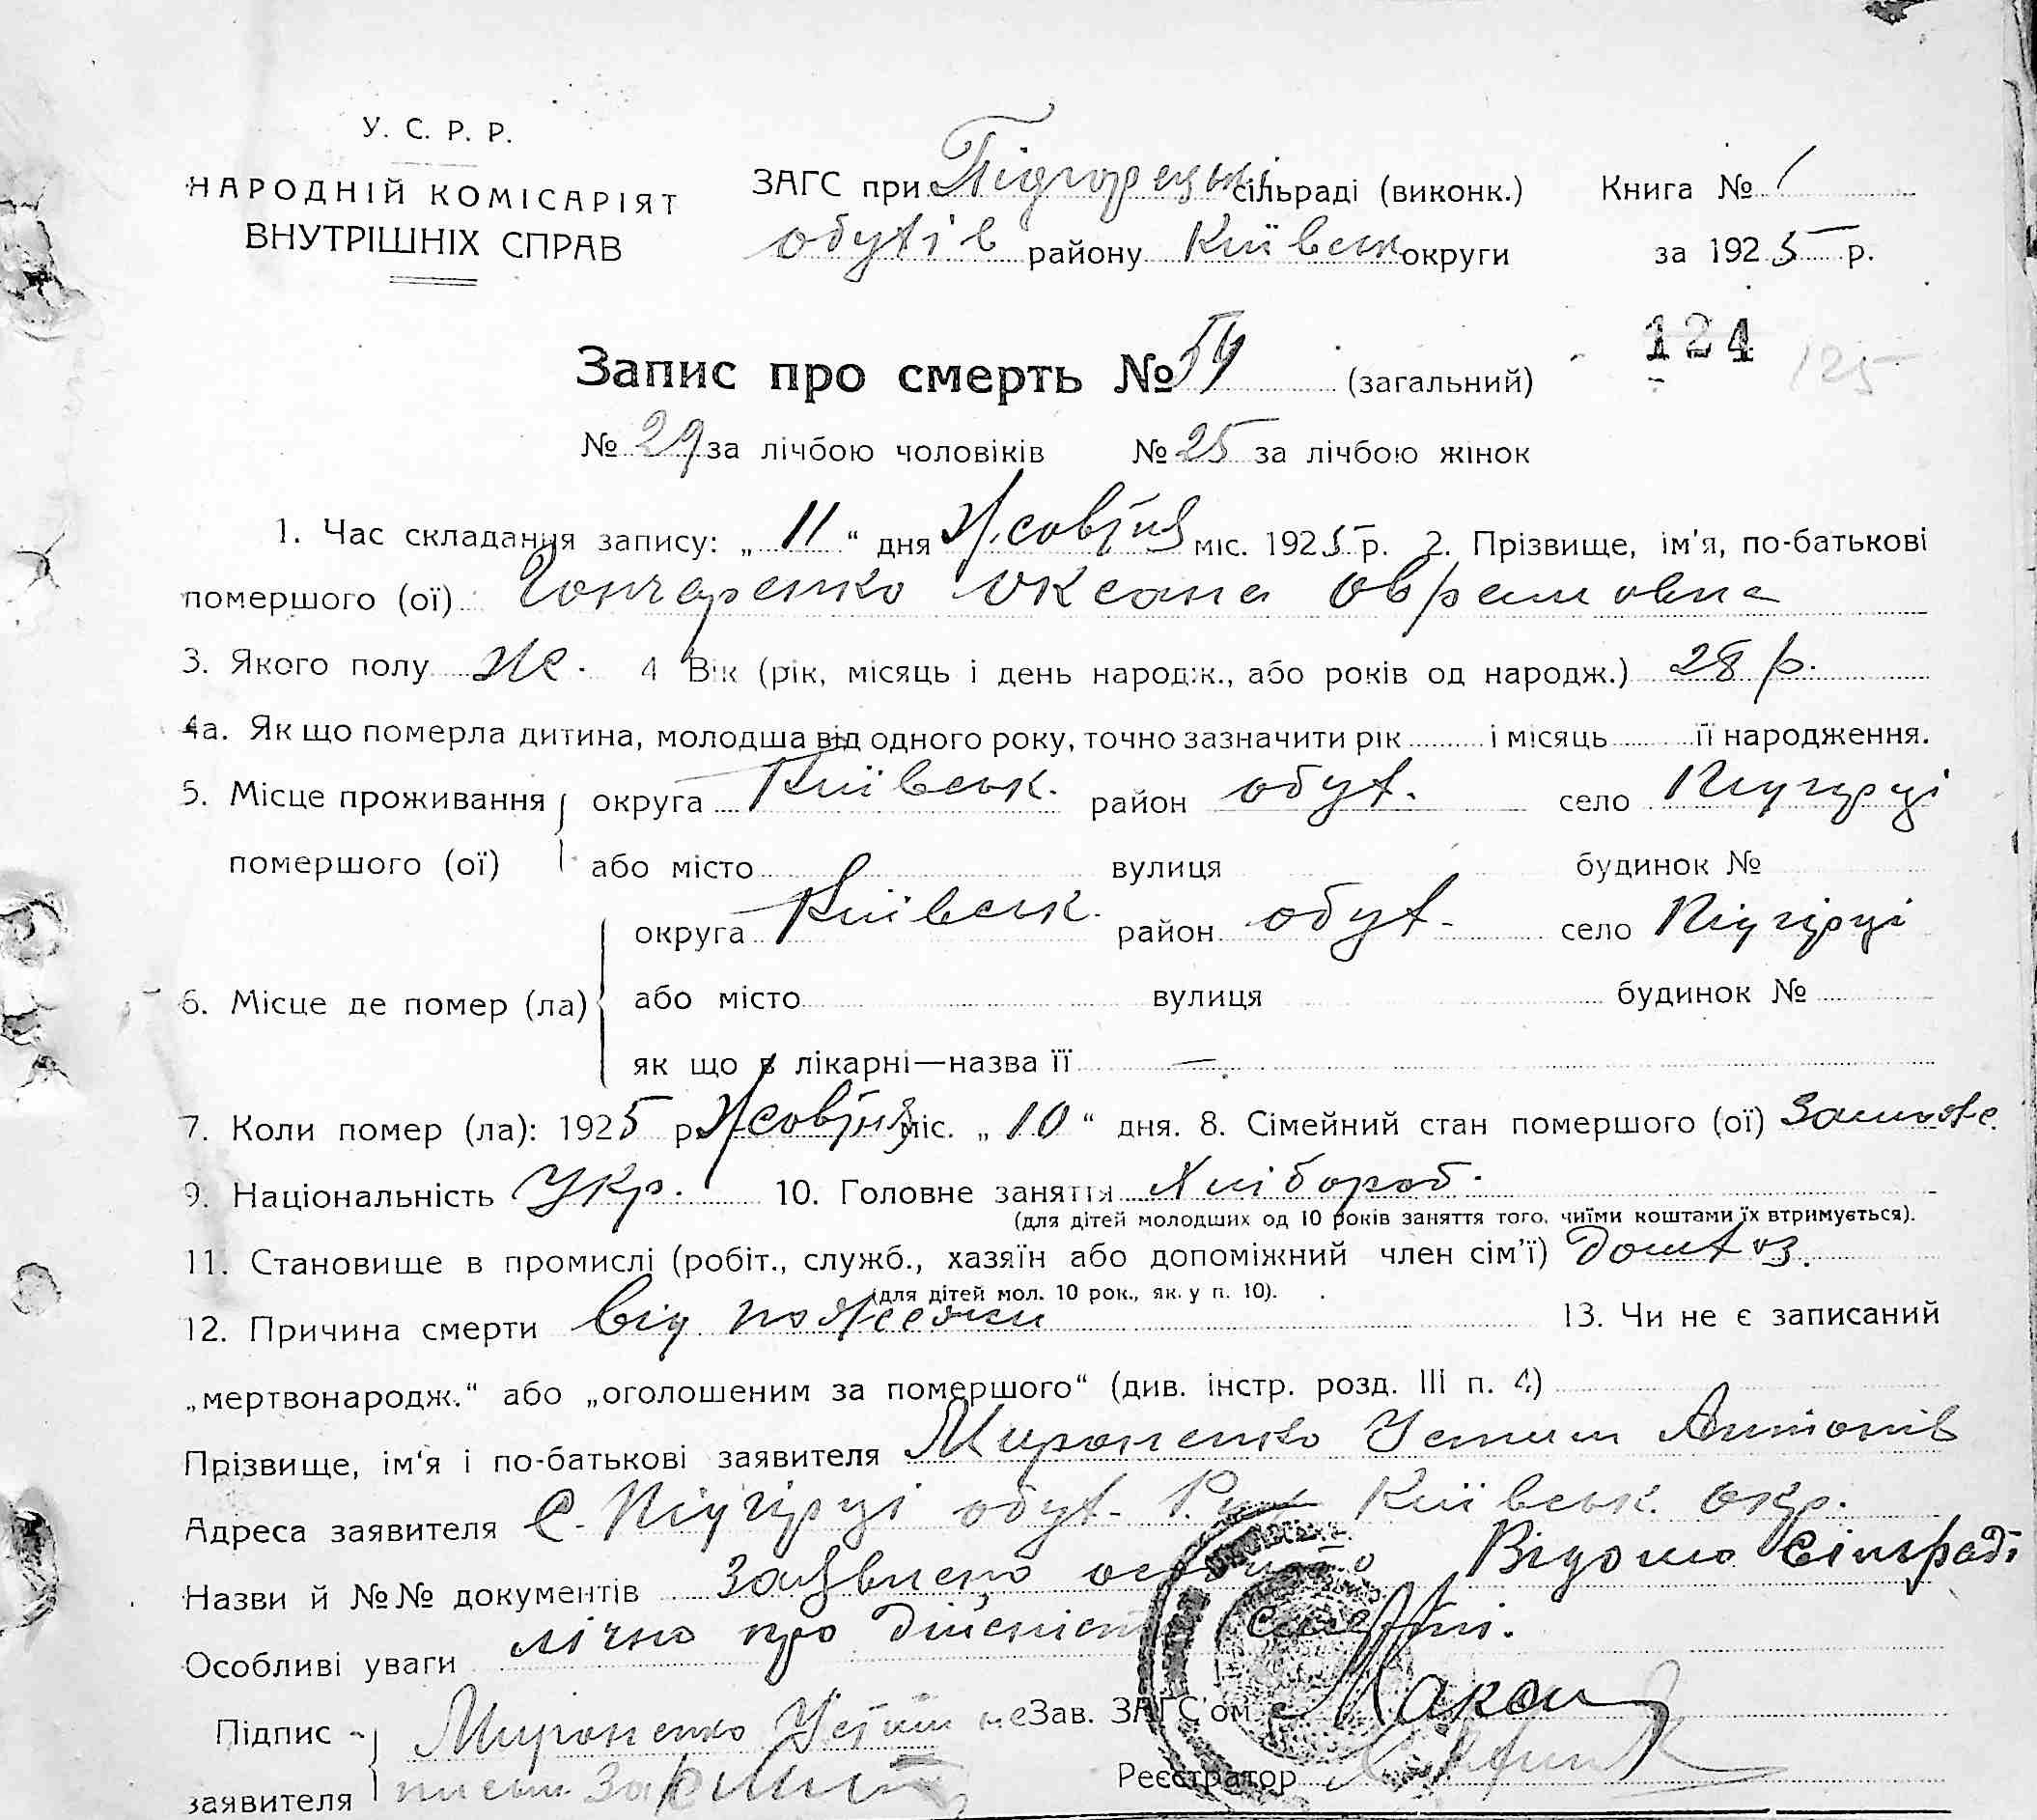 У. С. Р. Р.
НАРОДНІЙ КОМІСАРІЯТ
ВНУТРІШНІХ СПРАВ
ЗАГС при Підгорецькі сільраді (виконк.)
обухів району Київськ округи
Книга № 1
за 1925 р.
124
125
Запис про смерть № 54 (загальний)
№ 29 за лічбою чоловіків № 25 за лічбою жінок
1. Час складання запису: „ 11 “ дня Жовтня міс. 1925 р. 2. Прізвище, ім'я, по-батькові
помершого (ої) Гончаренко Оксана Оврамовна
3. Якого полу Ж. 4 Вік (рік, місяць і день народж., або років од народж.) 28 р.
4а. Як що померла дитина, молодша від одного року, точно зазначити рік і місяць її народження.
5. Місце проживання округа Київськ. район обух. село Підгірці
помершого (ої) або місто вулиця будинок №
округа Київськ. район обух. село Підгірці
6. Місце де помер (ла) або місто вулиця будинок №
як що в лікарні—назва її —
7. Коли помер (ла): 1925 р. Жовтня міс. „ 10 “ дня. 8. Сімейний стан помершого (ої) Замужн.
9. Національність Укр. 10. Головне заняття Хлібороб.
(для дітей молодших од 10 років заняття того, чиїми коштами їх втримується).
11. Становище в промислі (робіт., служб., хазяїн або допоміжний член сім'ї)
(для дітей мол. 10 рок., як. у п. 10).
12. Причина смерти від 13. Чи не є записаний
„мертвонародж.“ або „оголошеним за помершого“ (див. інстр. розд. III п. 4)
Прізвище, ім'я і по-батькові заявителя Мироненко Устим Антонів
Адреса заявителя с. Підгірці обух. Рай. Київськ. окр.
Назви й №№ документів Заявлено Відомо Сільраді
Особливі уваги лічно про дійсність смерти.
Підпис Мироненко Устим не Зав. ЗАГС'ом
заявителя письм. за Реєстратор